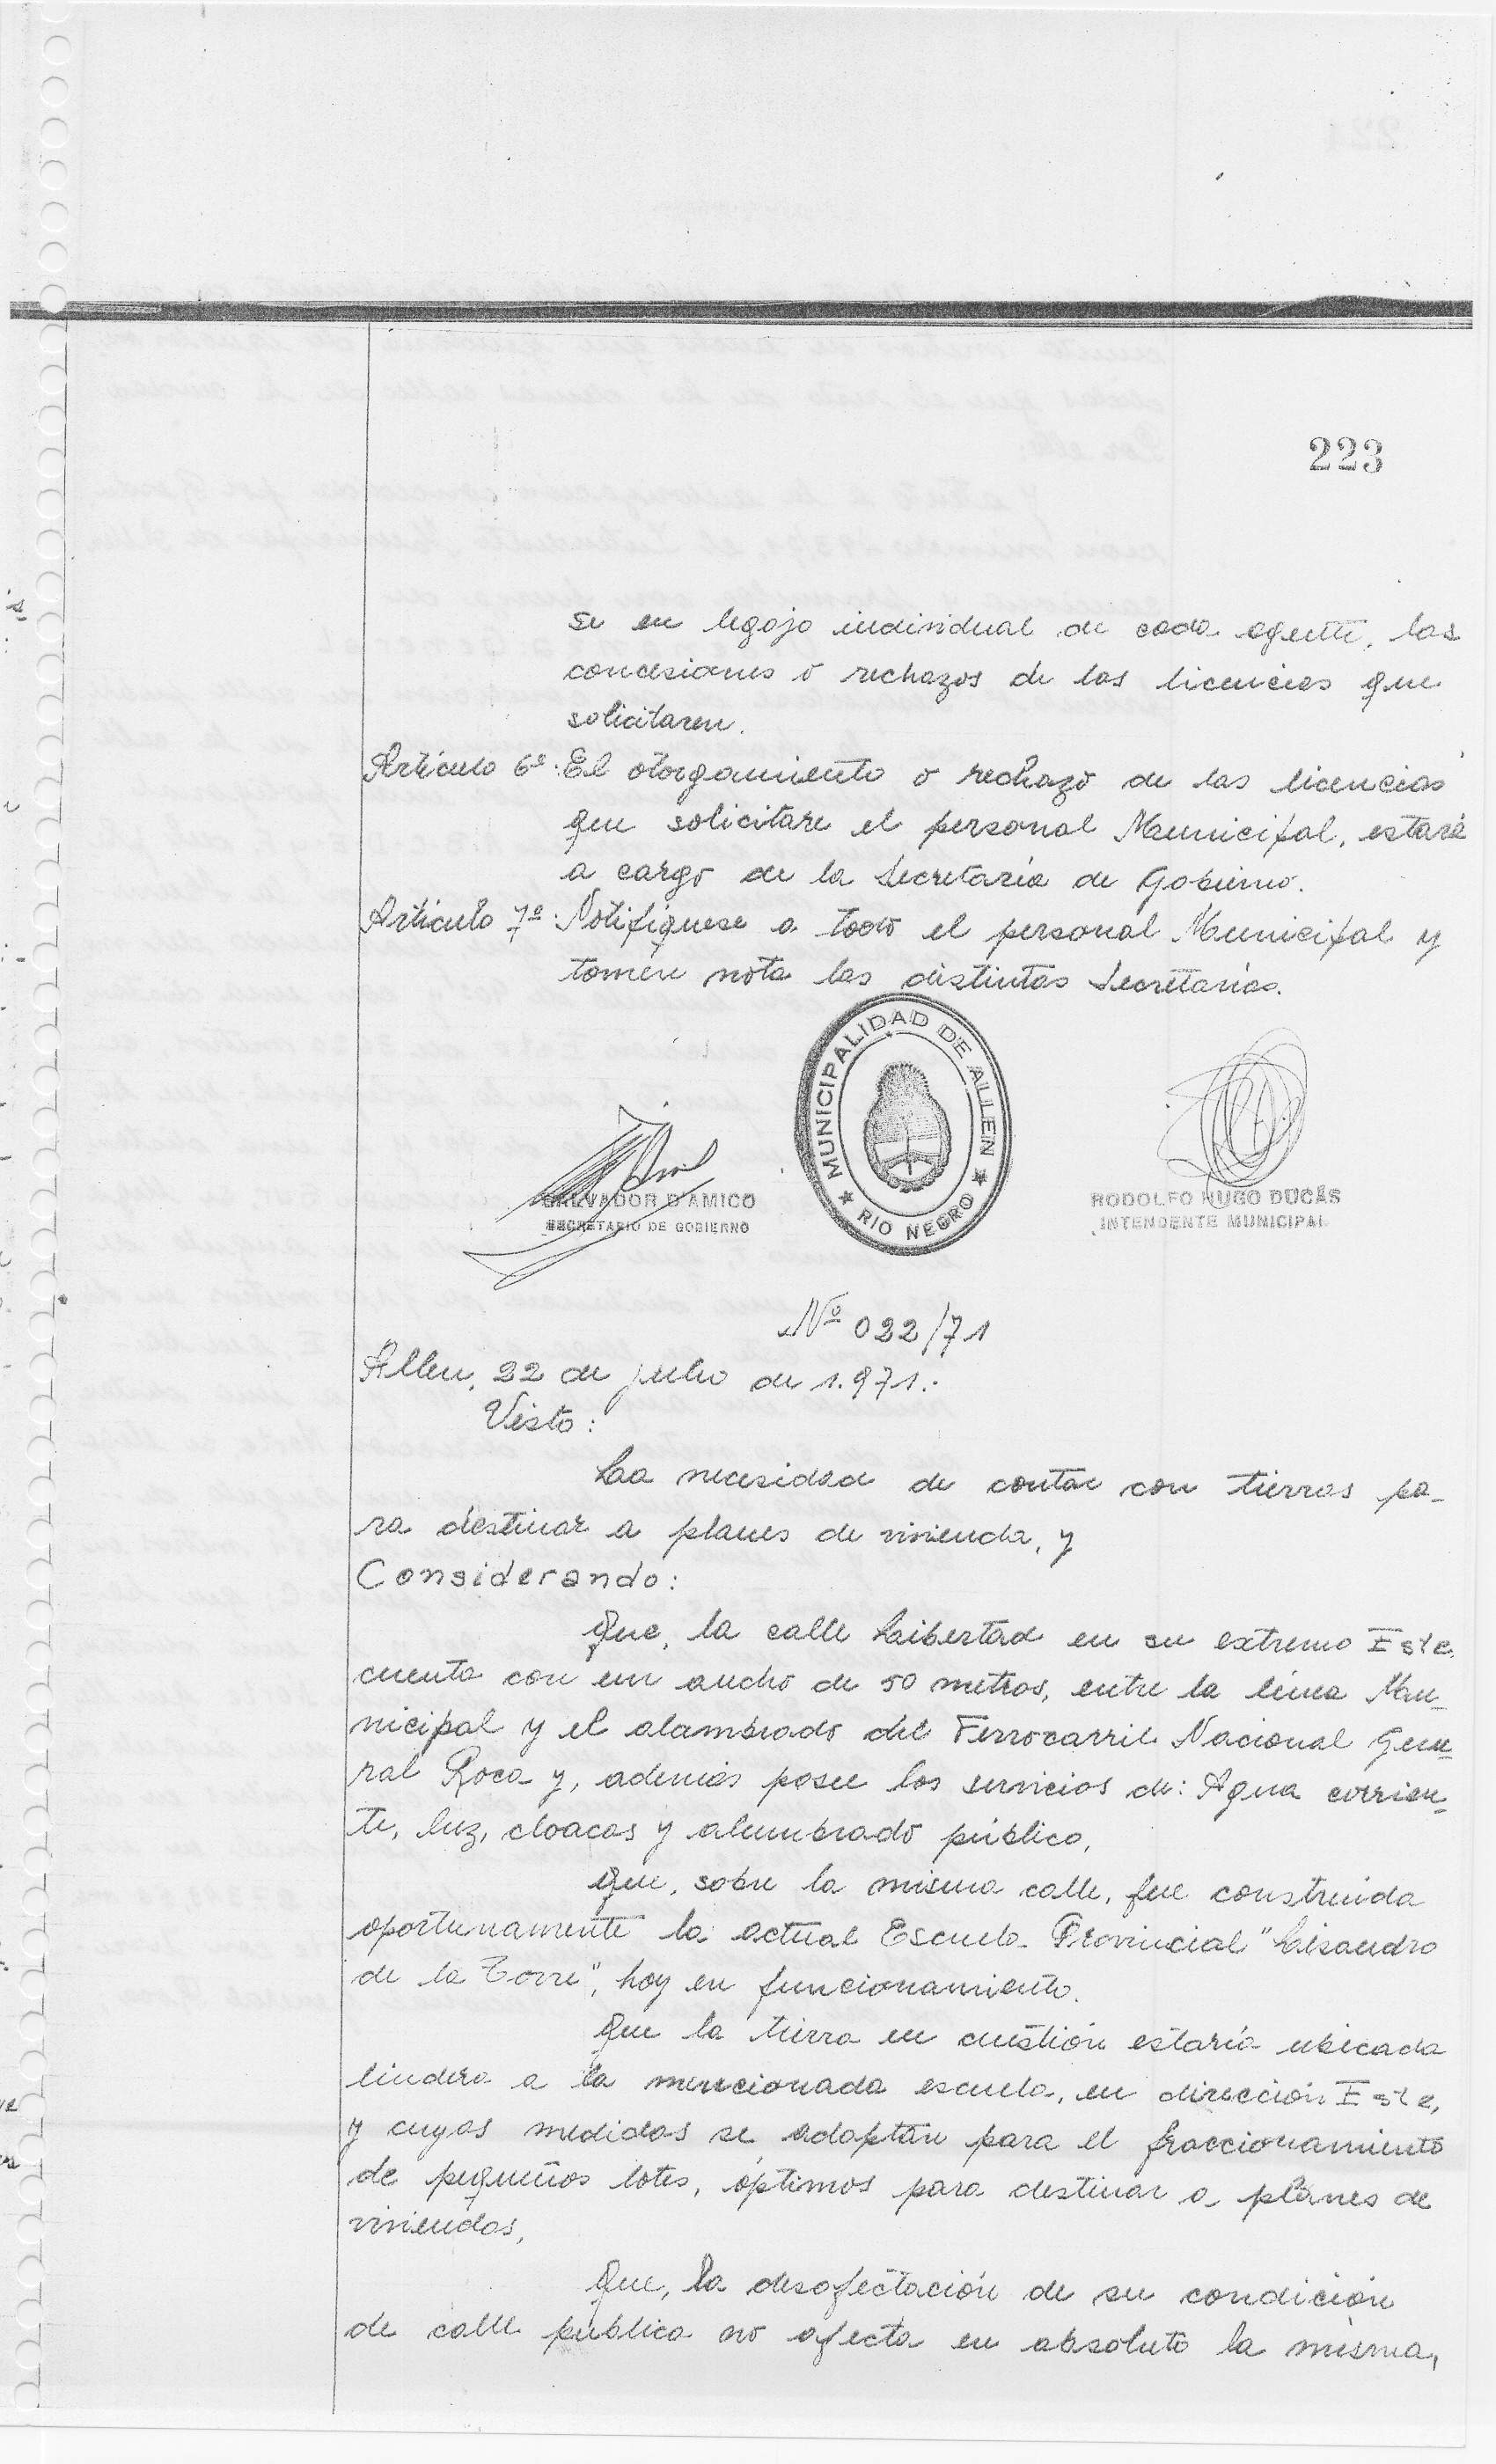 223
se en legajo individual de cada agente, las
concesiones o rechazos de las licencias que
solicitaren.
Artículo 6º: El otorgamiento o rechazo de las licencias
que solicitare el personal Municipal, estará
a cargo de la Secretaría de Gobierno.
Artículo 7º: Notifíquese a todo el personal Municipal y
tomen nota las distintas Secretarías.
MUNICIPALIDAD DE ALLEN
RIO NEGRO
SALVADOR D'AMICO
SECRETARIO DE GOBIERNO
RODOLFO HUGO DUCÁS
INTENDENTE MUNICIPAL
Nº 022/71
Allen, 22 de julio de 1.971.-
Visto:
La necesidad de contar con tierras pa-
ra destinar a planes de vivienda, y
Considerando:
Que, la calle Libertad en su extremo Este
cuenta con un ancho de 50 metros, entre la línea Mu-
nicipal y el alambrado del Ferrocarril Nacional Gene-
ral Roca y, además posee los servicios de: Agua corrien-
te, luz, cloacas y alumbrado público,
Que, sobre la misma calle, fue construida
oportunamente la actual Escuela Provincial "Lisandro
de la Torre", hoy en funcionamiento.
Que la tierra en cuestión estaría ubicada
lindera a la mencionada escuela, en dirección Este,
y cuyas medidas se adaptan para el fraccionamiento
de pequeños lotes, óptimos para destinar a planes de
viviendas,
Que, la desafectación de su condición
de calle pública no afecta en absoluto la misma,